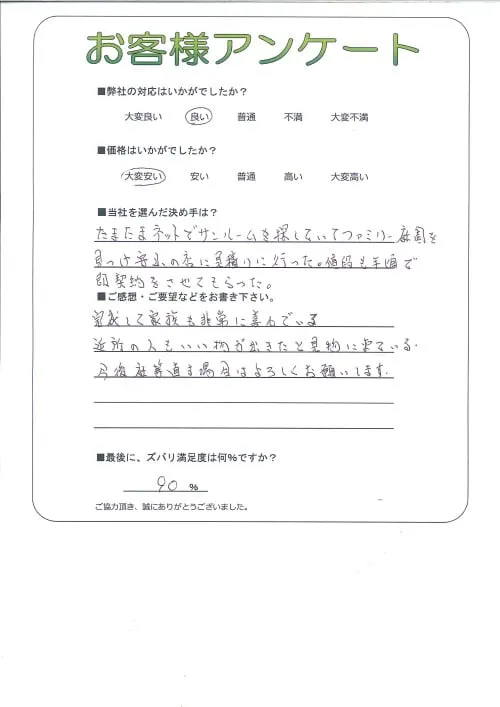 お客様アンケート
■弊社の対応はいかがでしたか?
大変良い 良い 普通 不満 大変不満
■価格はいかがでしたか?
大変安い 安い 普通 高い 大変高い
■当社を選んだ決め手は?
たまたまネットでサンルームを探していてファミリー庭園を
見つけ の店に見積りに行った。値段も手頃で
即契約をさせてもらった。
■ご感想・ご要望などをお書き下さい。
完成して家族も非常に喜んでいる
近所の人もいい物が出きたと見物に来ている.
今後庭等直す場合はよろしくお願いします.
■最後に、ズバリ満足度は何%ですか?
90 %
ご協力頂き、誠にありがとうございました。